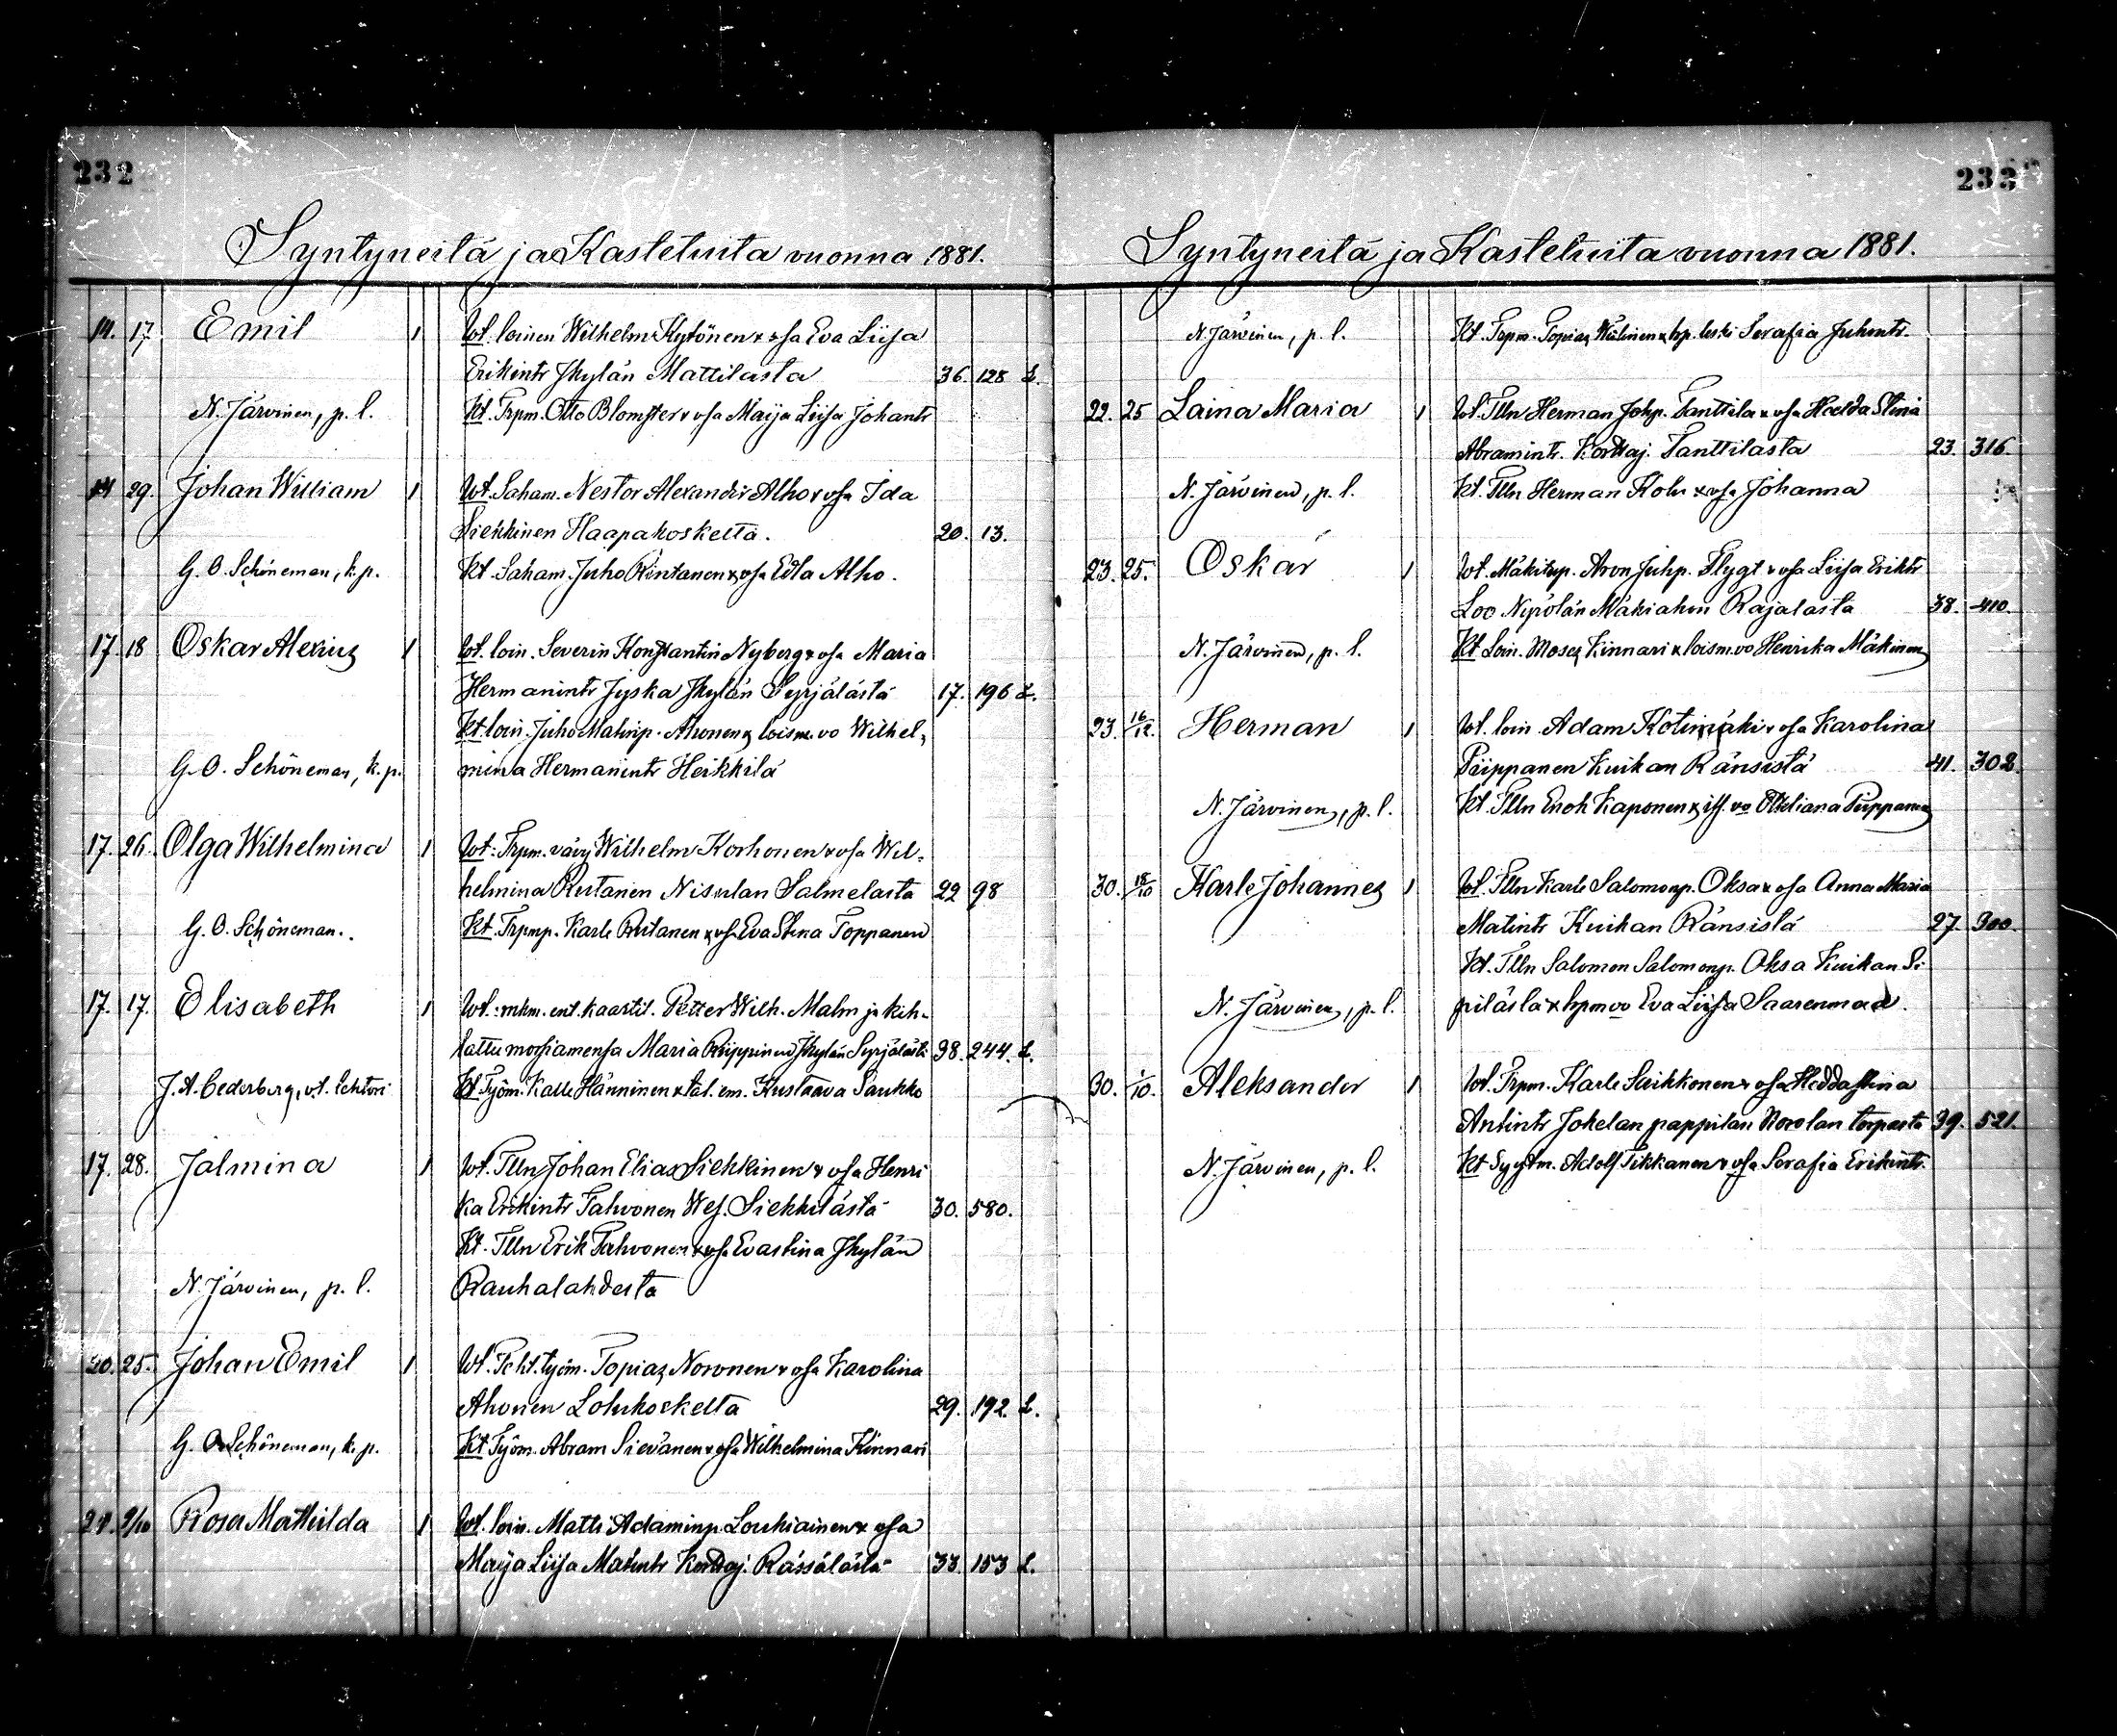 232
Syntyneitä ja Kastetuita vuonna 1881.
14. 17. Emil 1 Wt. loinen Wilhelm Kytönen & vsa Eva Liisa
Erikintr Jkylän Mattilasta 36. 128 L.
N. Järvinen, p. l. Kt. Trpm. Otto Blomster & vsa Maija Liisa Johantr
14 29. Johan William 1 Wt. Saham. Nestor Alexander Alho & vsa Ida
Siekkinen Haapakoskelta. 20. 13.
G. O. Schöneman, k. p. Kt. Saham. Juho Rintanen & vsa Edla Alho.
17. 18 Oskar Alexius 1 Wt. loin. Severin Konstantin Nyberg & vsa Maria
Hermanintr Jyska Jkylän Syrjälästä 17. 196 L.
Kt. loin. Juho Matinp. Ahonen & loism. vo Wilhel-
G. O. Schöneman, k. p. mina Hermanintr Heikkilä
17. 26. Olga Wilhelmina 1 Wt. Trpm. vävy Wilhelm Korhonen & vsa Wil-
helmina Rutanen Nisulan Salmelasta 22 98
G. O. Schöneman. Kt. Trpmp. Karle Rutanen & vsa Eva Stina Toppanen
17. 17. Elisabeth 1 Wt. mkm. ent. kaartil. Petter Wilh. Malm ja kih-
lattu morsiamensa Maria Piippinen Jkylän Syrjälästä 38. 244. L.
J. A. Cederberg, v.t. lehtori Kt. Työm. Kalle Hänninen & tal. em. Kustaava Saukko
17. 28. Jalmina 1 Wt. Tlln Johan Elias Siekkinen & vsa Henri
ka Erikintr Talvonen Wes. Siekkilästä 30. 580.
Kt. Tlln Erik Talvonen & vsa Evastina Jkylän
N. Järvinen, p. l. Rauhalahdesta
20. 25. Johan Emil 1 Wt. Teht. työm. Topias Noronen & vsa Karolina
Ahonen Lohikoskelta 29. 192. L.
G. O. Schöneman, k. p. Kt. Työm. Abram Sievänen & vsa Wilhelmina Kinnari
21. 2/10 Rosa Mathilda 1 Wt. loin. Matti Adaminp. Loukiainen & vsa
Maija Liisa Matintr Kortaj. Rässälästä 33. 153 L.
233
Syntyneitä ja Kastetuita vuonna 1881.
N. Järvinen, p. l. Kt. Trpm. Topias & hp. leski Serafia Juhontr.
22. 25 Laina Maria 1 Wt. Tlln Herman Johp. Tanttila & vsa Hedda Stina
Abramintr. Kortaj. Tanttilasta 23. 316.
N. Järvinen, p. l. Kt. Tlln Herman & vsa Johanna
23. 25. Oskar 1 Wt. Mäkitup. Aron Juhp. Flygt & vsa Liisa Eriktr
Loo Nyrölän Mäkiahon Rajalasta 38. 410.
N. Järvinen, p. l. Kt. Loin. Moses Kinnari & loism. vo Henrika Mäkinen
23. 16/12. Herman 1 Wt. loin. Adam Kotimäki & vsa Karolina
Piippanen Kuikan Ränsistä 41. 302.
N. Järvinen, p. l. Kt. Tlln Enok Kaponen & itl. vo Otteliana Piippanen
30. 18/10 Karle Johannes 1 Wt. Tlln Karle Salomonp. Oksa & vsa Anna Maria
Matintr Kuikan Ränsistä 27. 300.
Kt. Tlln Salomon Salomonp. Oksa Kuikan Si-
N. Järvinen, p. l. pilästä & hpm vo Eva Liisa Saarenmaa.
30. 1/10. Aleksander 1 Wt. Trpm. Karle Suikkonen & vsa Hedda Stina
Antintr Jokelan pappilan Norolan torpasta 39. 521.
N. Järvinen, p. l. Kt. Syytm. Adolf Tikkanen & vsa Serafia Erikintr.